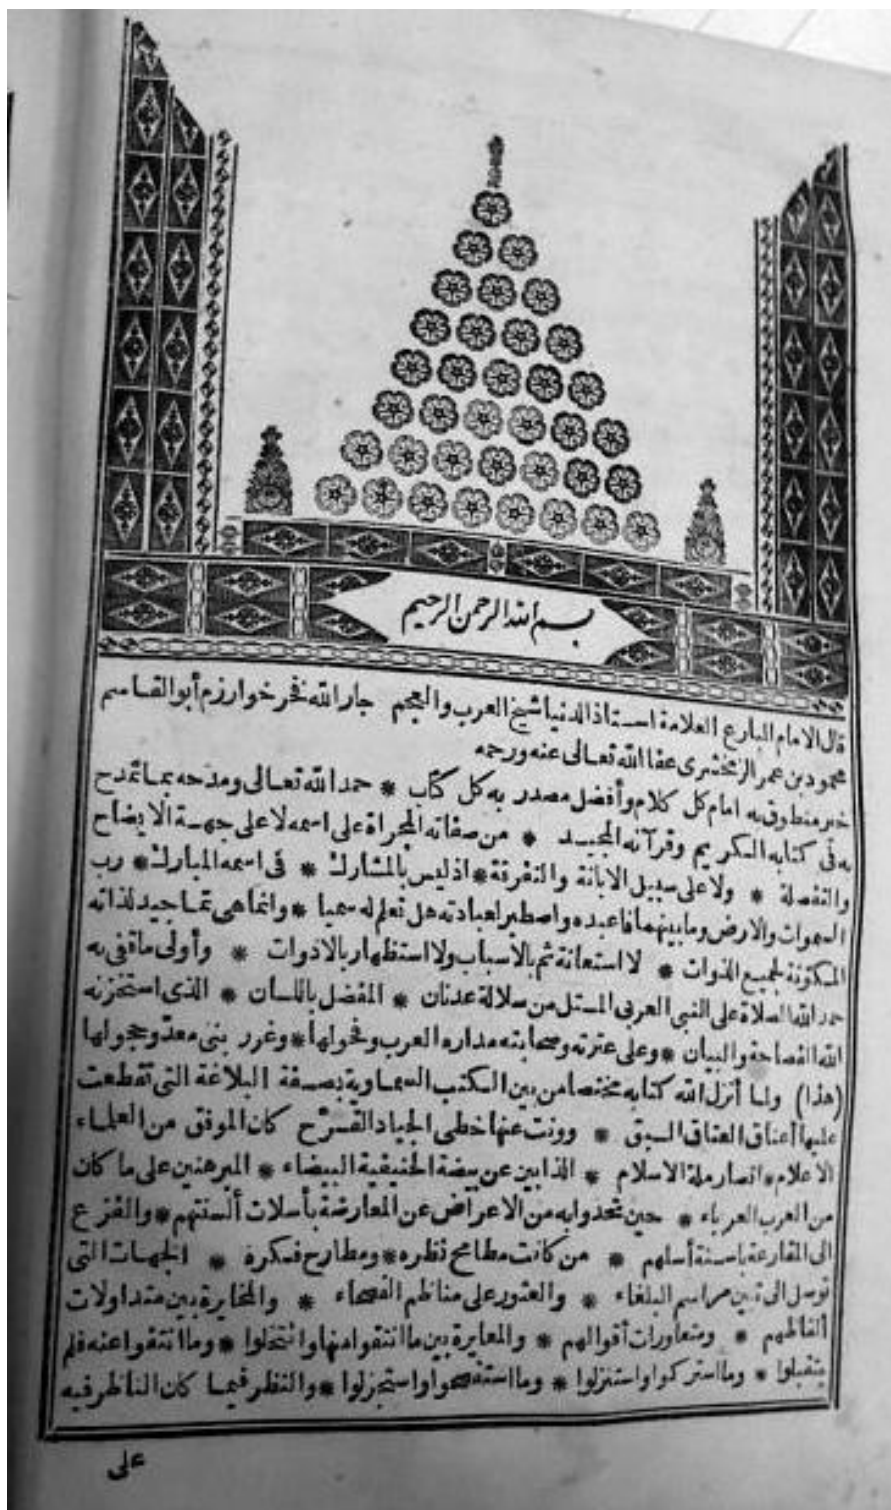 بسم الله الرحمن الرحيم
قال الامام البارع العلامة استاذ الدنيا شيخ العرب والعجم جار الله فخر خوارزم أبو القاسم
محمود بن عمر الزمخشرى عفا الله تعالى عنه ورحمه
خير منطوق به امام كل كلام وأفضل مصدر به كل كتاب * حمد الله تعالى ومدحه بما تمدح
به فى كتابه الكريم وقرآنه المجيد * من صفاته المجراة على اسمه لا على جهة الايضاح
والتفصلة * ولا على سبيل الابانة والتفرقة * اذ ليس بالمشارك * فى اسمه المبارك * رب
السموات والارض وما بينهما فاعبده واصطبر لعبادته هل تعلم له سميا * وانما هى تماجيد لذاته
المكونة لجميع الذوات * لا استعانة ثم بالاسباب ولا استظهار بالادوات * وأولى ما قفى به
حمد الله الصلاة على النبى العربى المستل من سلالة عدنان * المفضل باللسان * الذى استخزنه
الله الفصاحة والبيان * وعلى عترته وصحابته مداره العرب وفحولها * وغرر بنى معدّ وحجولها
(هذا) ولما أنزل الله كتابه مختصا من بين الكتب السماوية بصفة البلاغة التى تقطعت
عليها أعناق العتاق السبق * وونت عنها خطى الجياد القرّح كان الموفق من العلماء
الاعلام * انصار ملة الاسلام * الذابين عن بيضة الحنيفية البيضاء * المبرهنين على ما كان
من العرب العرباء * حين تحدوا به من الاعراض عن المعارضة بأسلات ألسنتهم * والفزع
الى المقارعة باسنة أسلهم * من كانت مطامح نظره * ومطارح فكره * الجهات التى
توصل الى تبين مراسم البلغاء * والعثور على مناظم الفصحاء * والمخايرة بين متداولات
ألفاظهم * ومتعاورات أقوالهم * والمعايرة بين ما انتقوا منها وانتخلوا * وما انتقوا عنه فلم
يتقبلوا * وما استركوا واستنزلوا * وما استفصحوا واستجزلوا * والنظر فيما كان الناظر فيه
على